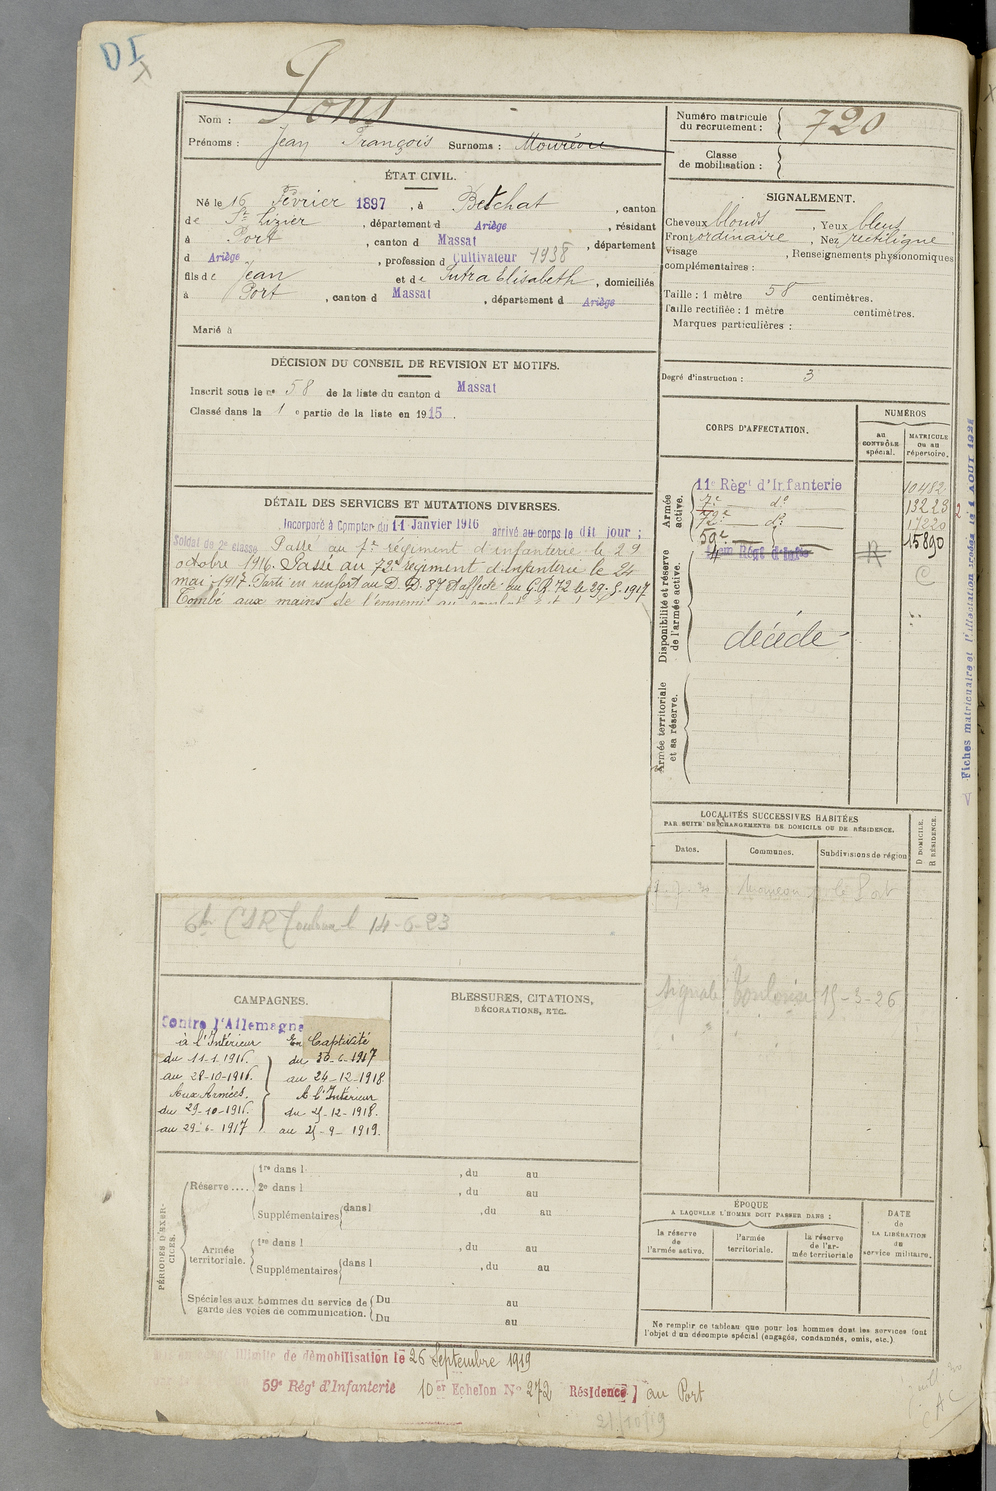 DI
Nom : Pons
Prénoms : Jean François Surnoms : Mourève
Numéro matricule du recrutement : 720
Classe de mobilisation :
ÉTAT CIVIL.
Né le 16 Février 1897, à Betchat, canton
de St Lizier, département d Ariège, résidant
à Port, canton d Massat, département
d Ariège, profession d Cultivateur 1938
fils de Jean et de Sutra Elisabeth, domiciliés
à Port, canton d Massat, département d Ariège
Marié à
SIGNALEMENT.
Cheveux blonds, Yeux bleus
Front ordinaire, Nez rectiligne
Visage, Renseignements physionomiques
complémentaires :
Taille : 1 mètre 58 centimètres.
Taille rectifiée : 1 mètre centimètres.
Marques particulières :
Degré d'instruction : 3
DÉCISION DU CONSEIL DE REVISION ET MOTIFS.
Inscrit sous le n° 58 de la liste du canton d Massat
Classé dans la 1e partie de la liste en 1915.
DÉTAIL DES SERVICES ET MUTATIONS DIVERSES.
Incorporé à Compter du 11 Janvier 1916 arrivé au corps le dit jour ;
Soldat de 2e classe Passé au 7e régiment d'infanterie le 29
octobre 1916. Passé au 72e régiment d'Infanterie le 24
mai 1917. Parti en renfort au D. D. 87 et affecté au G.R. 72 le 29-5-1917
Tombé aux mains de l'ennemi au combat
CORPS D'AFFECTATION.
NUMÉROS
au CONTRÔLE spécial.
MATRICULE ou au répertoire.
Armée active.
11e Règt d'Infanterie 10482
7e do 13223
72e do 17220
59e 15890
Disponibilité et réserve de l'armée active.
décédé
Armée territoriale et sa réserve.
Fiches matriculaire et d'affectation
LOCALITÉS SUCCESSIVES HABITÉES
PAR SUITE DE CHANGEMENTS DE DOMICILE OU DE RÉSIDENCE.
Dates. Communes. Subdivisions de région
D DOMICILE.
R RÉSIDENCE.
le Port
signalé Toulouse 15-3-26
14-6-23
CAMPAGNES.
Contre l'Allemagne
à l'Intérieur
du 11-1-1916.
au 28-10-1916.
Aux Armées.
du 29-10-1916.
au 29-6-1917
En Captivité
du 30-6-1917
au 24-12-1918
A l'Intérieur
du 25-12-1918.
au 25-9-1919.
BLESSURES, CITATIONS,
DÉCORATIONS, ETC.
PÉRIODES D'EXERCICES.
Réserve ....
1re dans l , du au
2e dans l , du au
Supplémentaires dans l , du au
Armée territoriale.
1re dans l , du au
Supplémentaires dans l , du au
Spéciales aux hommes du service de garde des voies de communication.
Du au
Du au
ÉPOQUE
A LAQUELLE L'HOMME DOIT PASSER DANS :
la réserve de l'armée active.
l'armée territoriale.
la réserve de l'armée territoriale
DATE de LA LIBÉRATION du service militaire.
Ne remplir ce tableau que pour les hommes dont les services font
l'objet d'un décompte spécial (engagés, condamnés, omis, etc.)
illimité de démobilisation le 26 Septembre 1919
59e Régt d'Infanterie 10er Echelon No 272 Résidence au Port